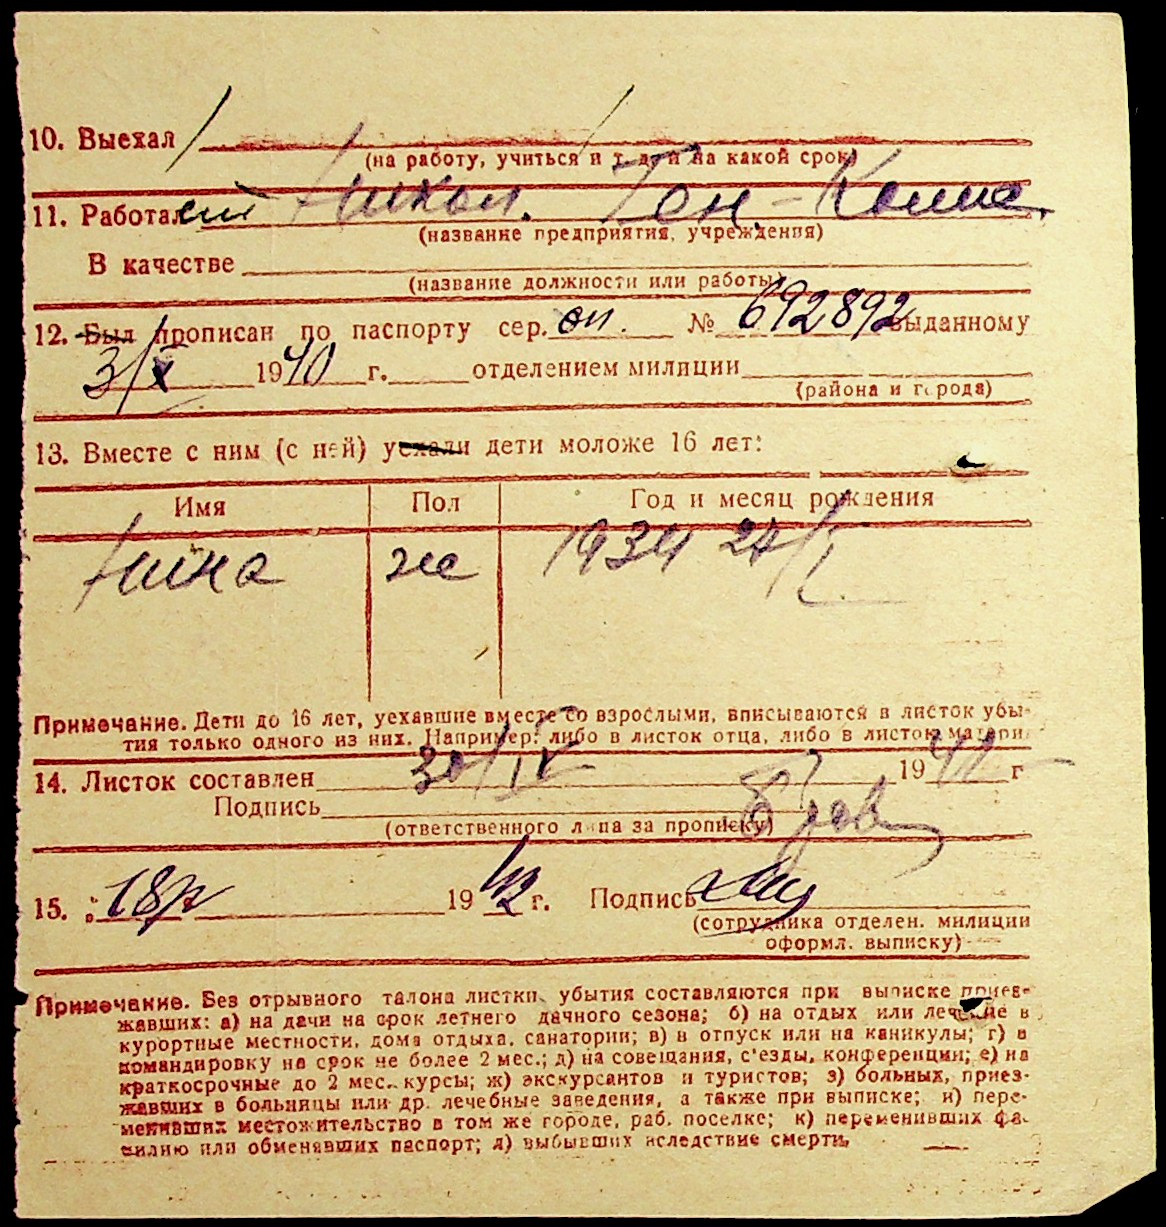 10. Выехал
(на работу, учиться и т. д. и на какой срок)
11. Работал
(название предприятия, учреждения)
В качестве
(название должности или работы)
12. Был прописан по паспорту сер. № 692892 выданному
3/X 1940 г. отделением милиции
(района и города)
13. Вместе с ним (с ней) уехали дети моложе 16 лет:
Имя Пол Год и месяц рождения
Нина же 1934 27/I
Примечание. Дети до 16 лет, уехавшие вместе со взрослыми, вписываются в листок убы-
тия только одного из них. Например: либо в листок отца, либо в листок матери.
14. Листок составлен 30/IV 1942 г
Подпись
(ответственного лица за прописку)
15. 1942 г. Подпись
(сотрудника отделен. милиции
оформл. выписку)
Примечание. Без отрывного талона листки убытия составляются при выписке приез-
жавших: а) на дачи на срок летнего дачного сезона; б) на отдых или лечение в
курортные местности, дома отдыха, санатории; в) в отпуск или на каникулы; г) в
командировку на срок не более 2 мес.; д) на совещания, с'езды, конференции; е) на
краткосрочные до 2 мес. курсы; ж) экскурсантов и туристов; з) больных, приез-
жавших в больницы или др. лечебные заведения, а также при выписке; и) пере-
менивших местожительство в том же городе, раб. поселке; к) переменивших фа-
милию или обменявших паспорт; л) выбывших вследствие смерти.